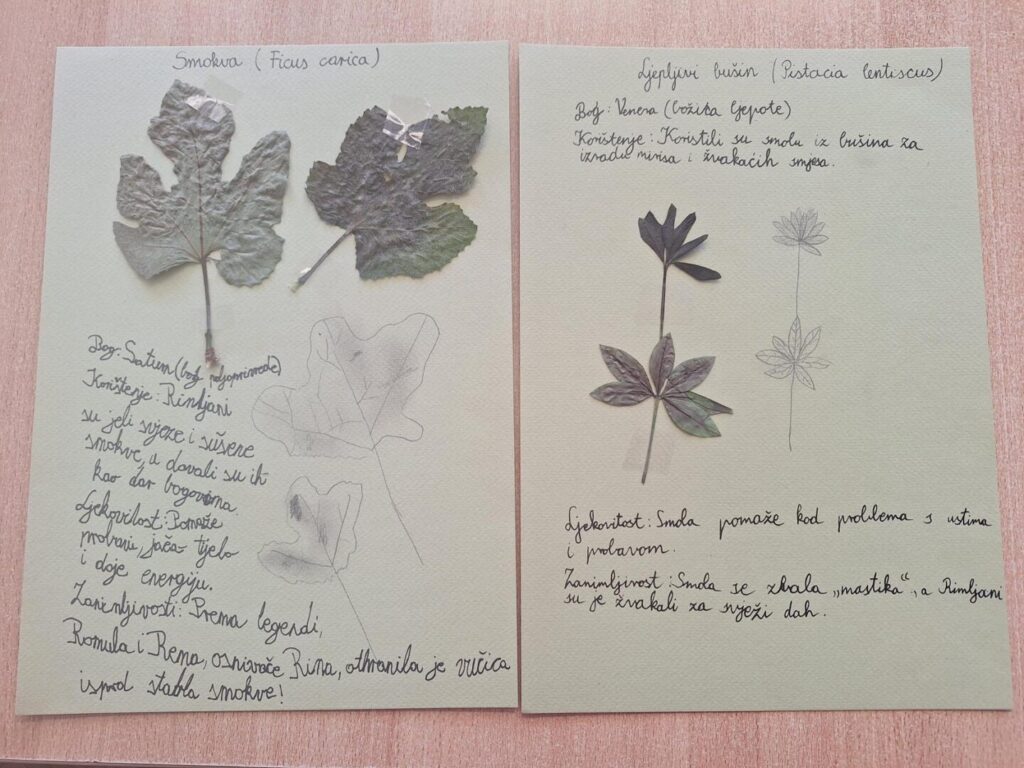 Smokva (Ficus carica)
Bog: Saturn (bog poljoprivrede)
Korištenje: Rimljani
su jeli svježe i sušene
smokve, a davali su ih
kao dar bogovima.
Ljekovitost: Pomaže
probavi, jača tijelo
i daje energiju.
Zanimljivosti: Prema legendi,
Romula i Rema, osnivače Rima, othranila je vučica
ispod stabla smokve!
Ljepljivi bušin (Pistacia lentiscus)
Bog: Venera (božica ljepote)
Korištenje: Koristili su smolu iz bušina za
izradu mirisa i žvakaćih smjesa.
Ljekovitost: Smola pomaže kod problema s ustima
i probavom.
Zanimljivost: Smola se zvala „mastika“, a Rimljani
su je žvakali za svježi dah.